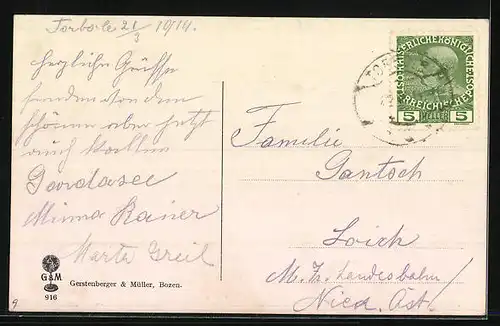 Torbole 21/3 1914.
Herzliche Grüsse
senden von dem
schönen aber jetzt
auch kalten
Gardasee
Minna Rainer
Marta Greil
G&M
916
Gerstenberger & Müller, Bozen.
KAISERLICHE KÖNIGLICHE
ÖSTERREICHISCHE POST
5 HELLER 5
Familie
Gantsch
Loich
M. Z. Landesbahn
Nied. Öst.